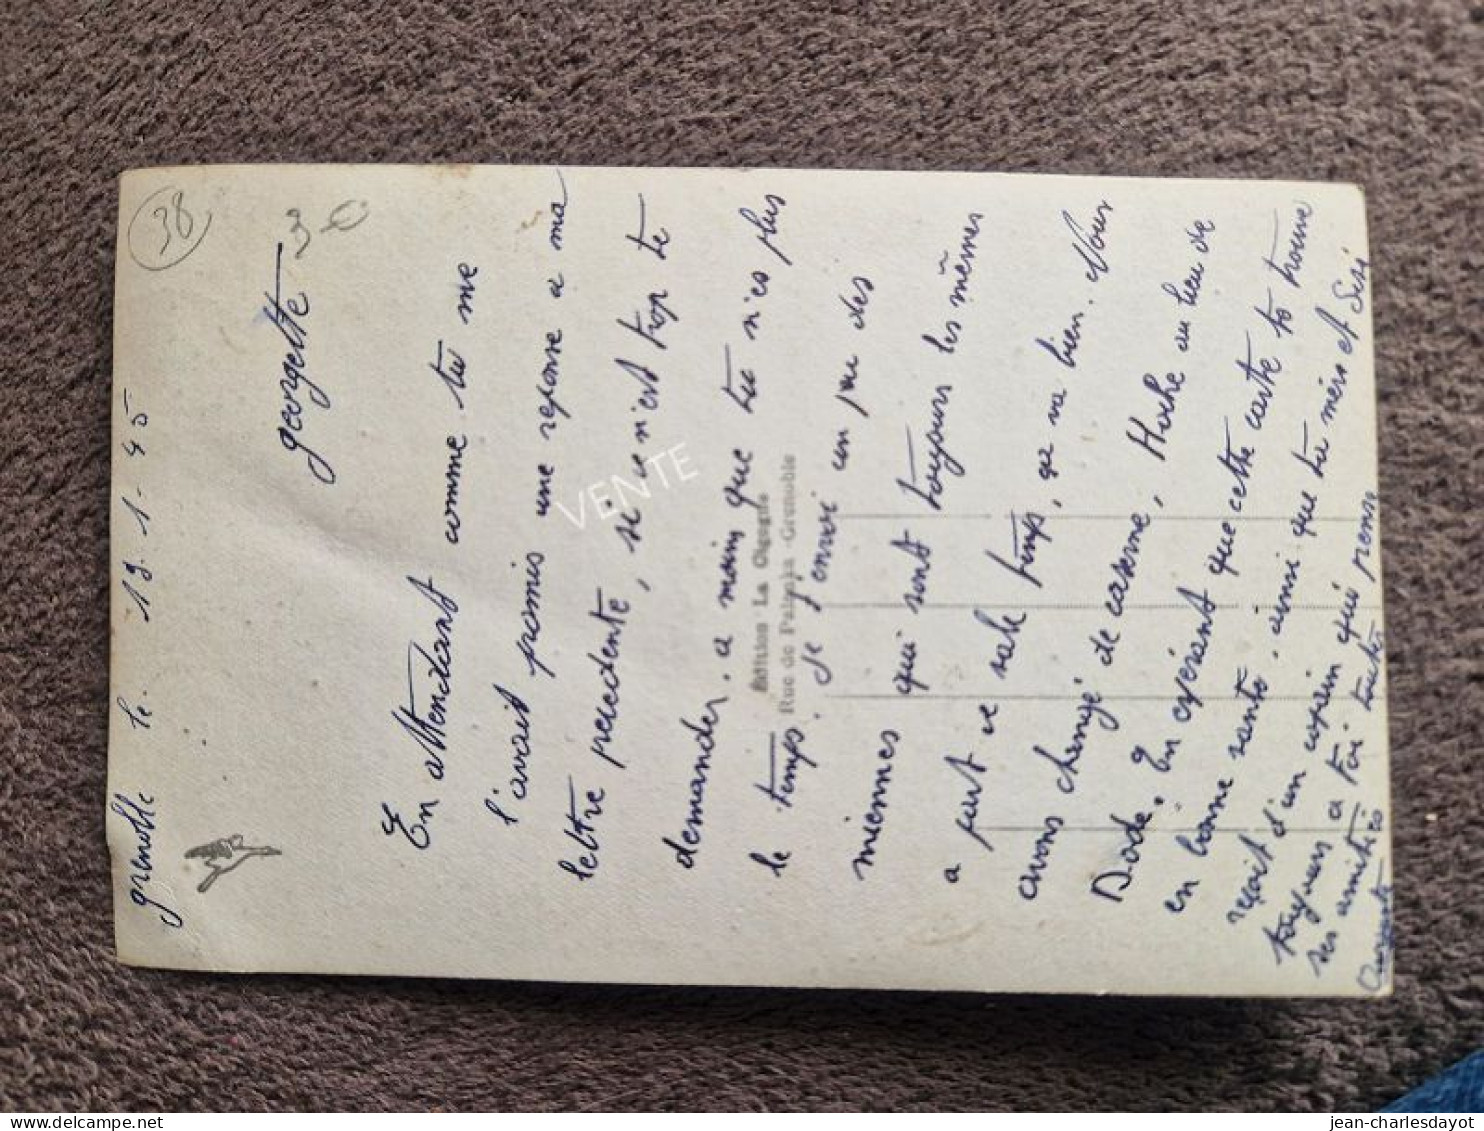 38
3 €
grenoble le. 13-1-45
georgette
En attendant comme tu me
l'avait promis une reponse a ma
lettre precedente, si ce n'est trop te
demander. a moins que tu n'es plus
le temps. je envoi un peu des
miennes qui sont toujours les mêmes
a part ce sale temps, ça va bien. Nous
avons changé de caserne, Hoche au lieu de
Dode. En espérant que cette carte to trouve
en bonne santé, ainsi que ta mére et
reçoit d'un copain qui pense
toujours a toi toute
ses amitiés
Edition La Cigogne
Rue de Palanka - Grenoble
VENTE
jean-charlesdayot